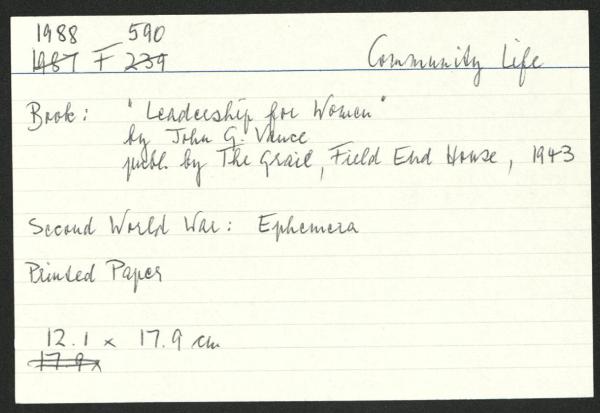 1988 590
1987 F 239
Community Life
Book: "Leadership for Women"
by John G. Vance
publ. by The Grail, Field End House, 1943
Second World War: Ephemera
Printed Paper
12.1 x 17.9 cm
17.9 x